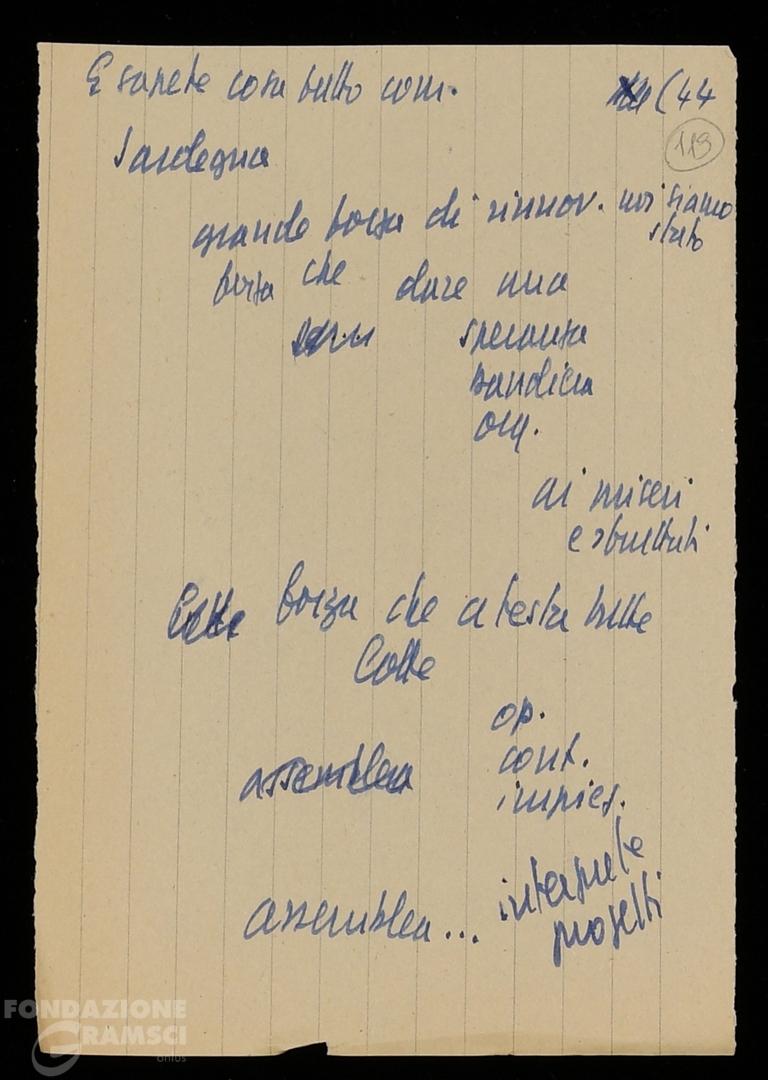 E sapete cosa tutto com. (44
119
Sardegna
grande forza di rinnov. noi siamo
stato
forza che dare una
speranza
bandiera
org.
ai miseri
e sfruttati
forza che a testa tutte
lotte
op.
cont.
impieg.
assemblea
assemblea... interprete
progetti
FONDAZIONE
GRAMSCI
onlus